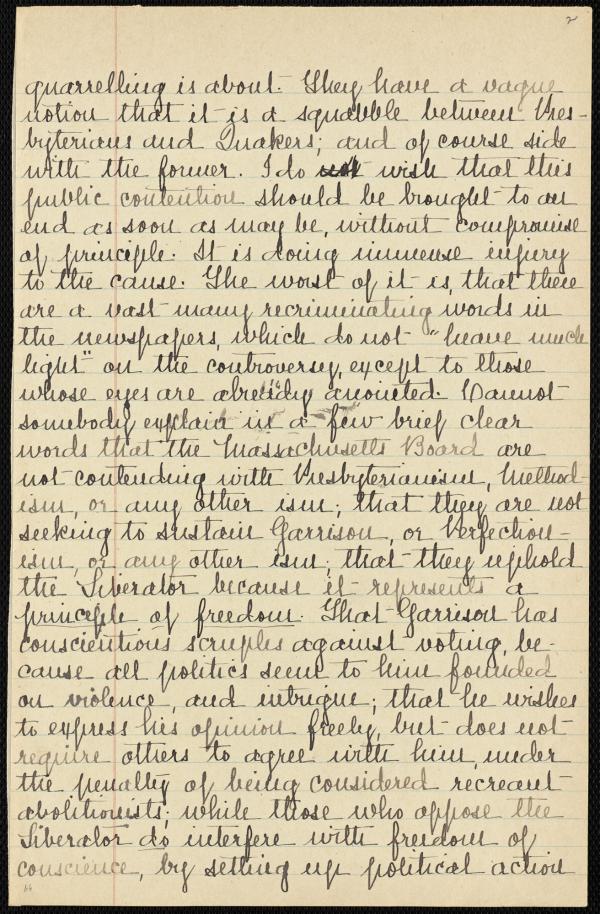 2
quarrelling is about. They have a vague
notion that it is a squabble between Pres-
byterians and Quakers; and of course side
with the former. I do wish that this
public contention should be brought to an
end as soon as may be, without compromise
of principle. It is doing immense injury
to the cause. The worst of it is, that there
are a vast many recriminating words in
the newspapers, which do not "heave much
light" on the controversy, except to those
whose eyes are already anointed. Cannot
somebody explain in a few brief clear
words that the Massachusetts Board are
not contending with Presbyterianism, Method-
ism, or any other ism; that they are not
seeking to sustain Garrison, or Perfection-
ism, or any other ism; that they uphold
the Liberator because it represents a
principle of freedom. That Garrison has
conscientious scruples against voting, be-
cause all politics seem to him founded
on violence, and intrigue; that he wishes
to express his opinion freely, but does not
require others to agree with him, under
the penalty of being considered recreant
abolitionists; while those who oppose the
Liberator do interfere with freedom of
conscience, by setting up political action